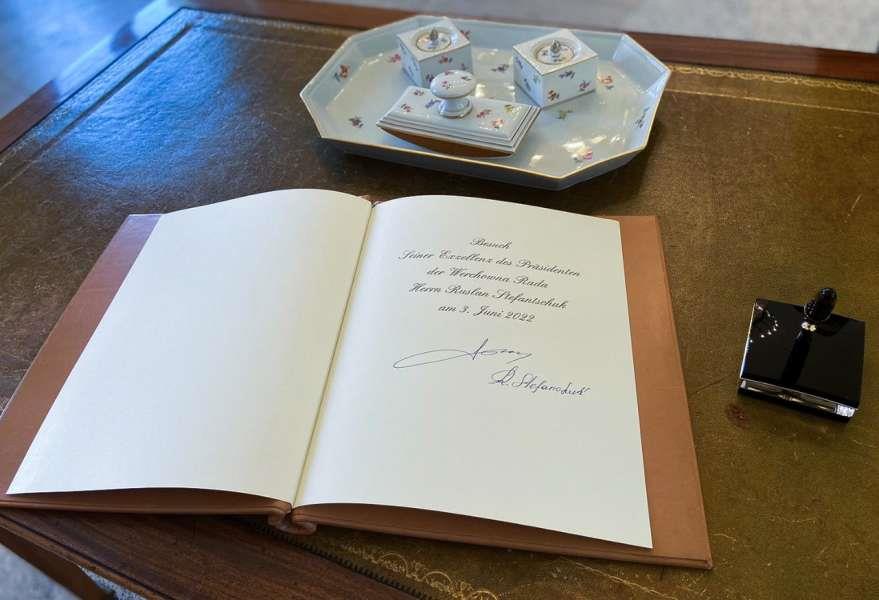 Besuch
Seiner Exzellenz des Präsidenten
der Werchowna Rada
Herrn Ruslan Stefantschuk
am 3. Juni 2022
R. Stefanchuk